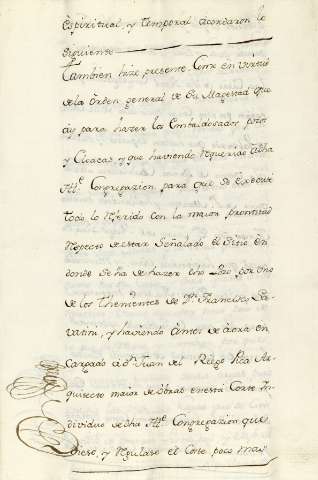 Espiritual, y Temporal acordaron lo
siguiente
Tambien hize presente Como en virtud
de la Orden general de Su Magestad que
ay para hazer los Embaldosados, pozos
y Cloacas, y que haviendo Requerido dicha
Rl. Congregazion para que se Execute
todo lo Referido con la maior promtitud
Respecto de estar Señalado el Sitio en
donde se ha de hazer Cho. Pozo por uno
de los Thenientes de Dn. Francisco Sa-
vatini, y haviendo Antes de aora en
Cargado a dn. Juan del Riego Pica Ar-
quitecto maior de obras en esta Corte In-
dividuo de dha Rl. Congregazion que
viese, y Regulase el Coste poco mas